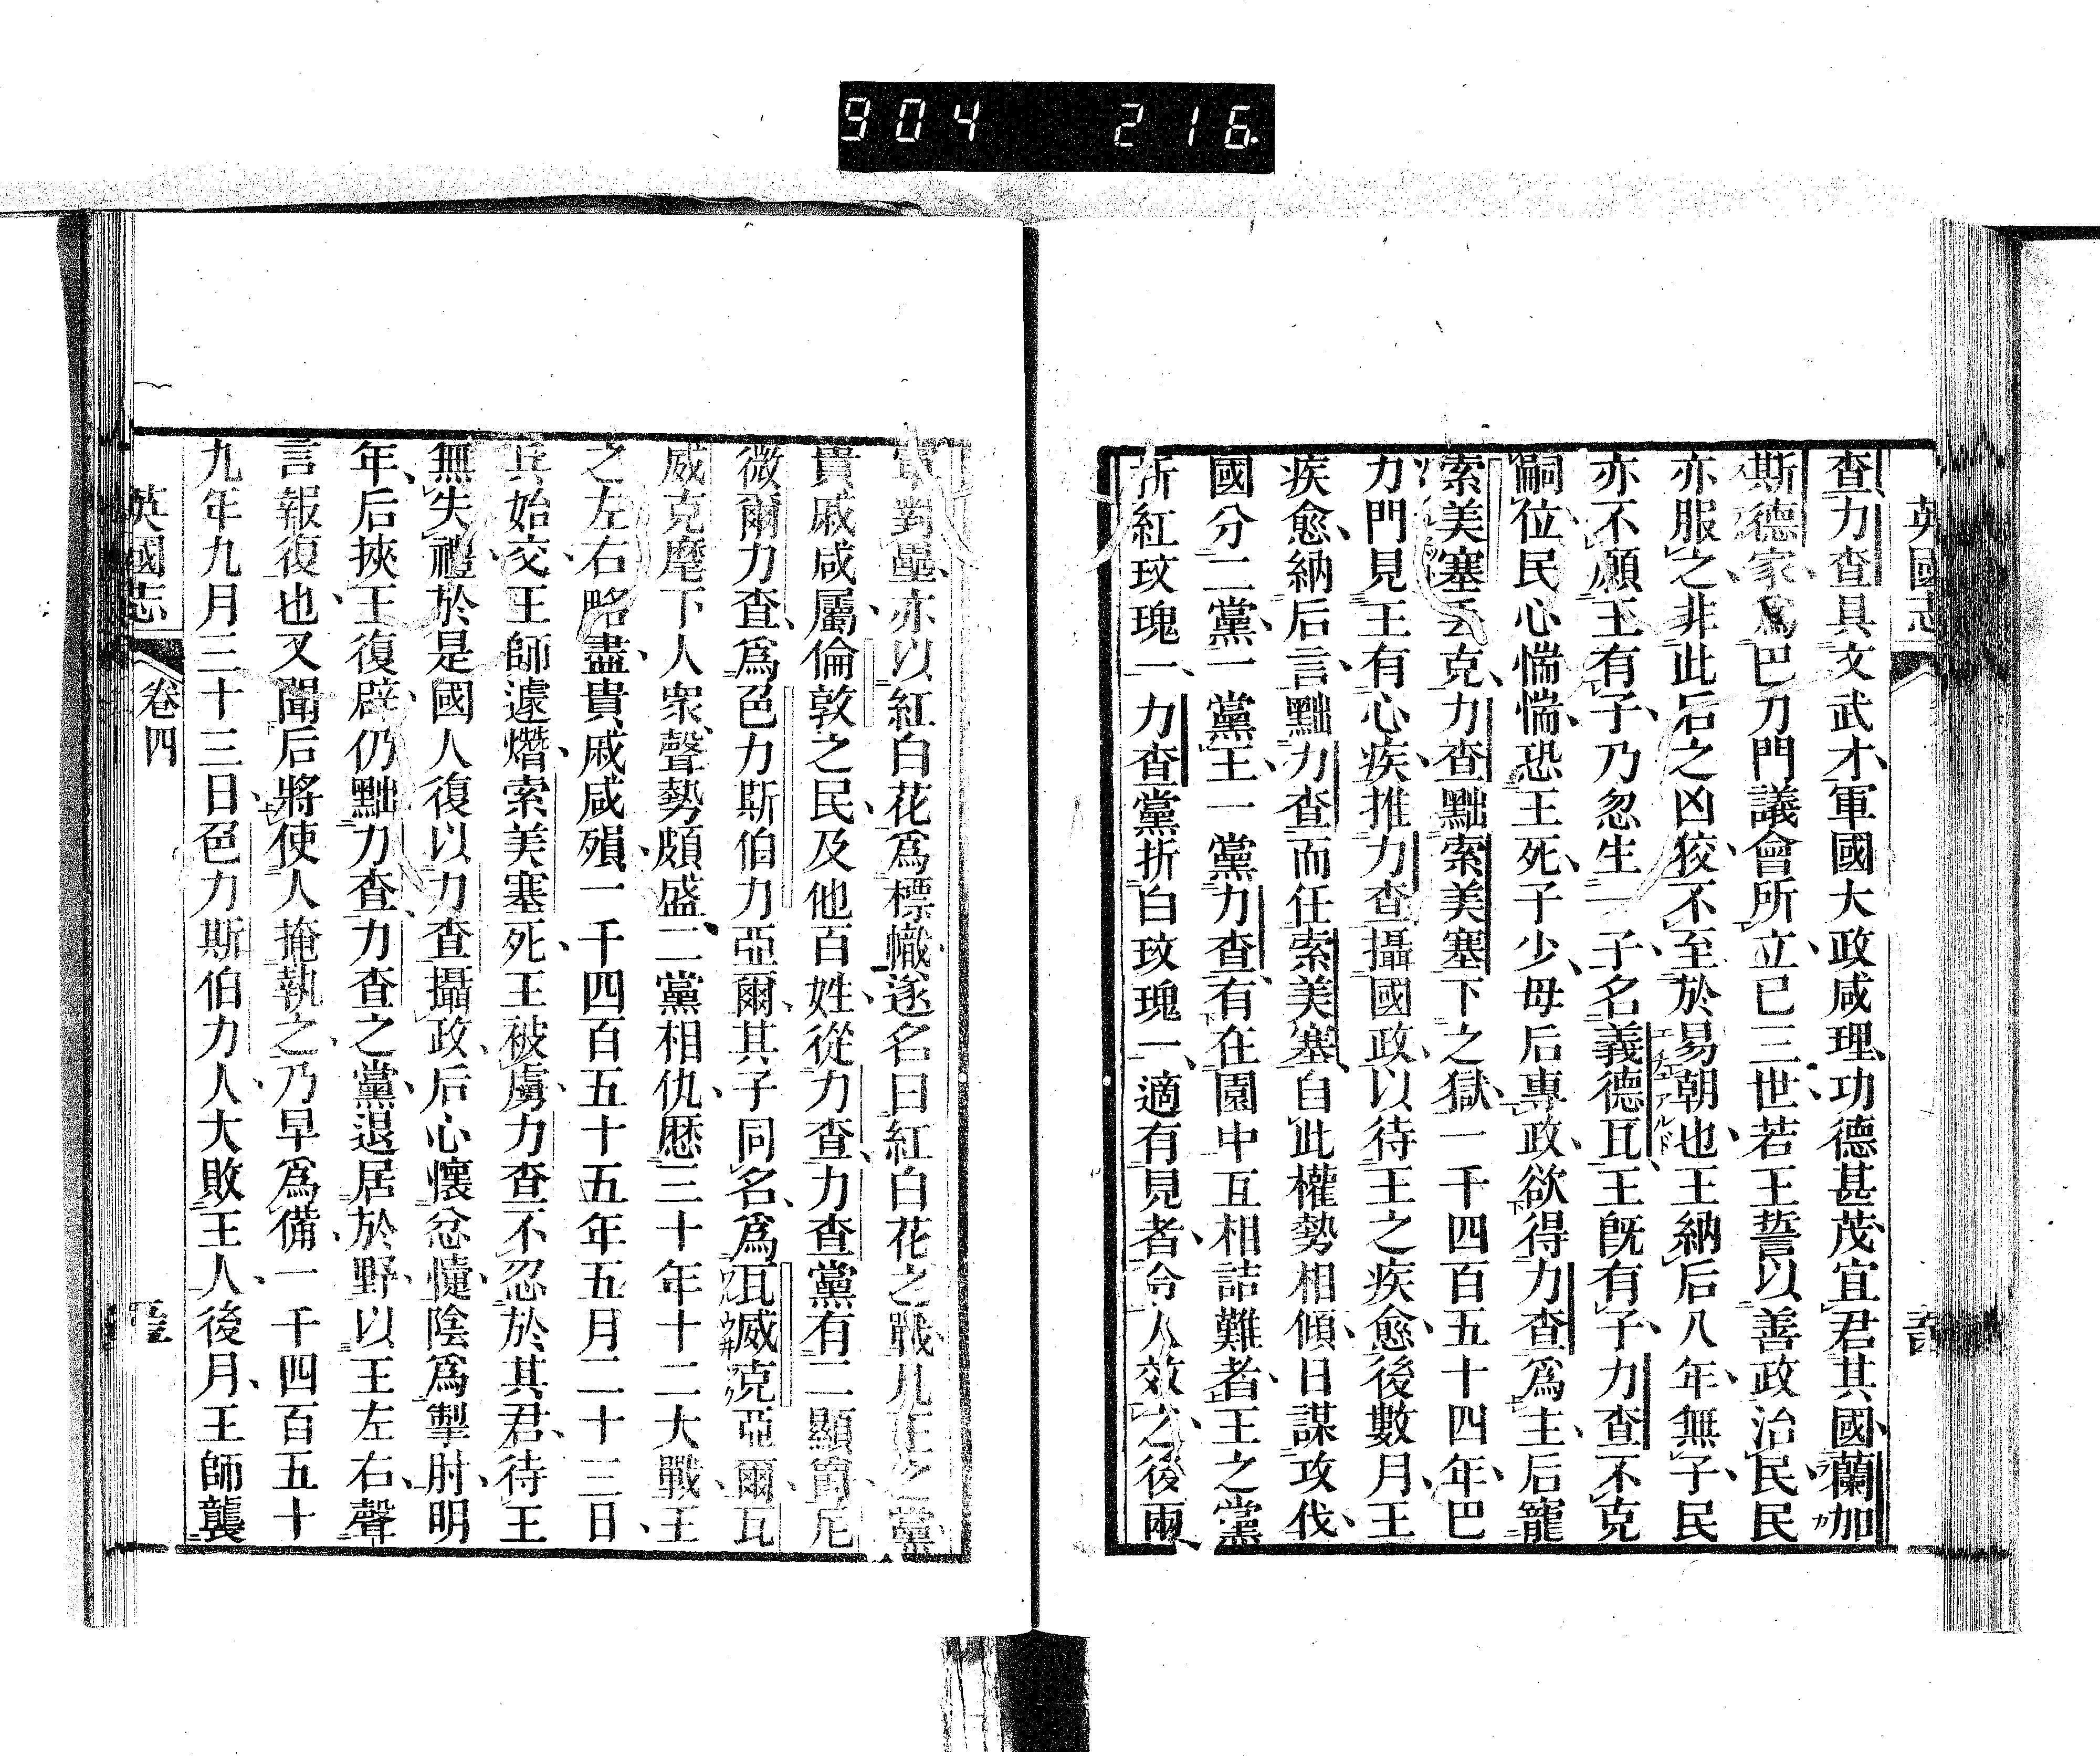 904 216
英國志
查力查具文武才軍國大政咸理功德甚茂宜君其國蘭加
斯德家爲巴力門議會所立已三世若王誓以善政治民民
亦服之非此后之凶狡不至於易朝也王納后八年無子民
亦不願王有子乃忽生一子名義德瓦王旣有子力查不克
エデュアルド
嗣位民心惴惴恐王死子少母后專政欲得力查爲主后寵
索美塞丟克力查黜索美塞下之獄一千四百五十四年巴
力門見王有心疾推力查攝國政以待王之疾愈後數月王
疾愈納后言黜力查而任索美塞自此權勢相傾日謀攻伐
國分二黨一黨王一黨力查有在園中互相詰難者王之黨
折紅玫瑰一力查黨折白玫瑰一適有見者令人效之後兩
軍對壘亦以紅白花爲標幟遂名曰紅白花之戰凡王之黨
貴戚咸屬倫敦之民及他百姓從力查力查黨有二顯爵尼
微爾力查爲色力斯伯力亞爾其子同名爲瓦威克亞爾瓦
威克麾下人衆聲勢頗盛二黨相仇歷三十年十二大戰王
之左右略盡貴戚咸殞一千四百五十五年五月二十三日
兵始交王師遽熸索美塞死王被虜力查不忍於其君待王
無失禮於是國人復以力查攝政后心懷忿懥陰爲掣肘明
年后挾王復辟仍黜力查力查之黨退居於野以王左右聲
言報復也又聞后將使人掩執之乃早爲備一千四百五十
九年九月三十三日色力斯伯力人大敗王人後月王師襲
英國志
卷四